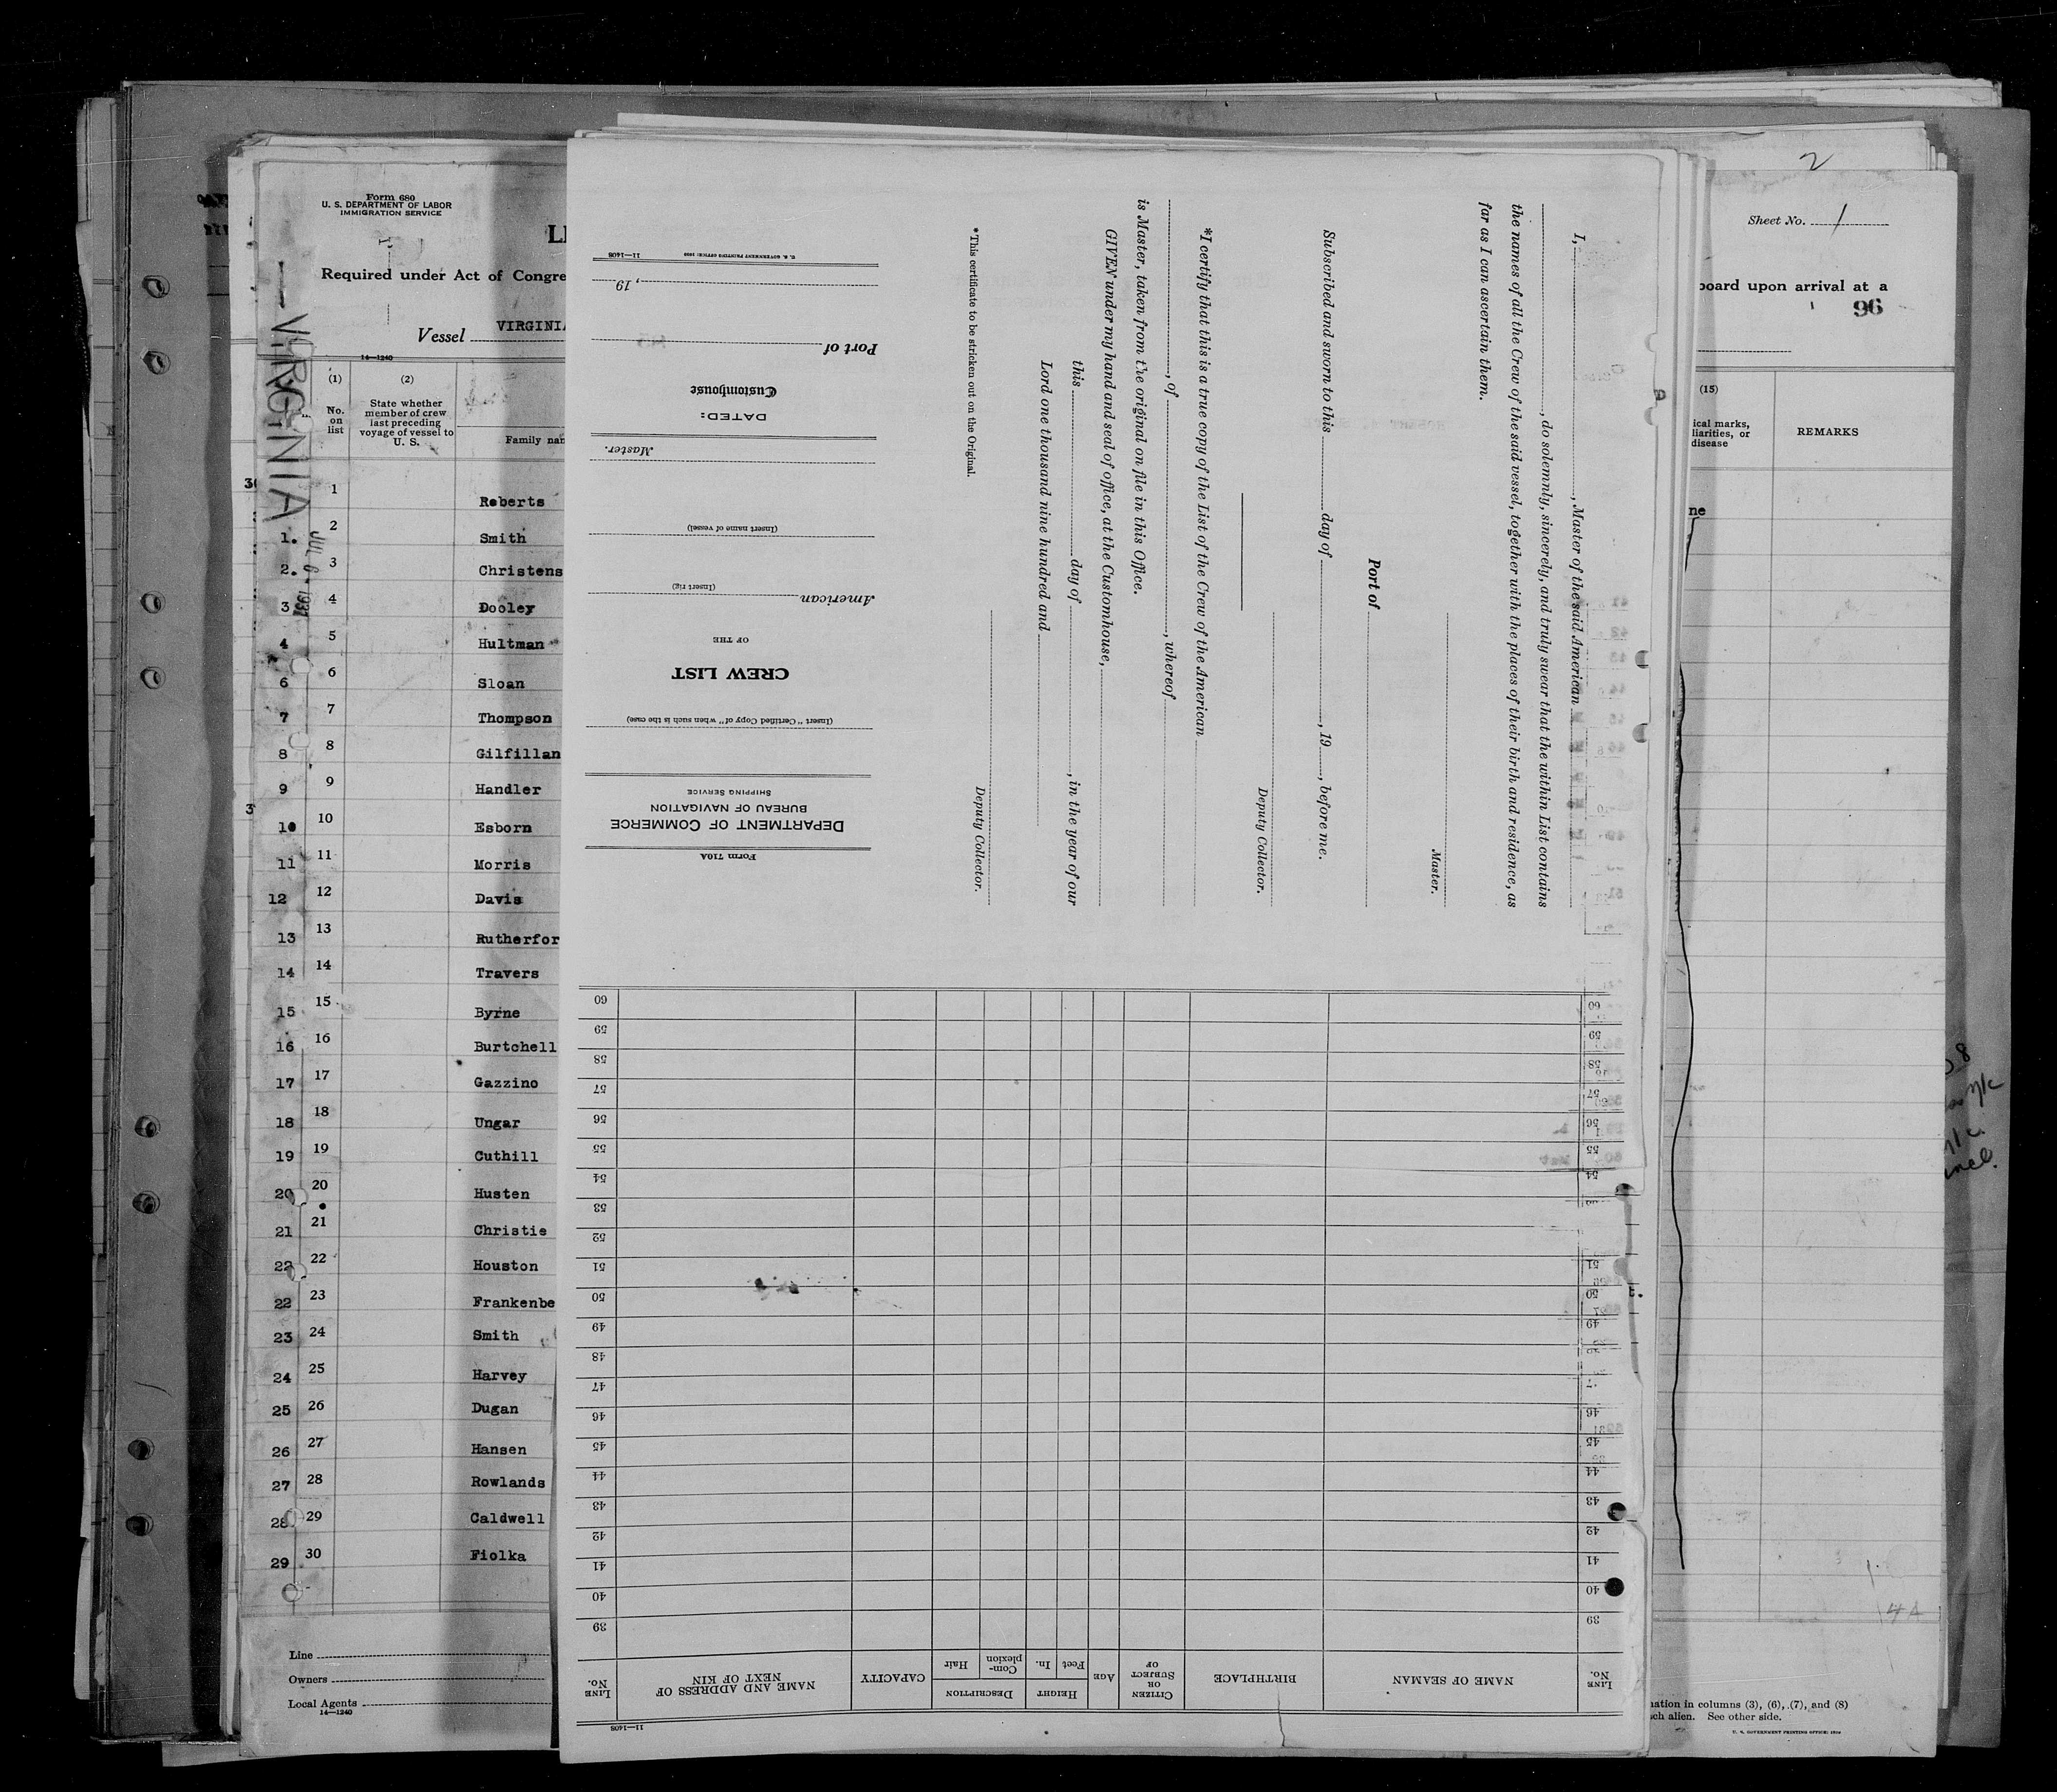 Form 680
U. S. DEPARTMENT OF LABOR
IMMIGRATION SERVICE
Required under Act of Congre
Vessel VIRGINIA
14—1240
VIRGINIA
JUL 6 - 1937
(1)
No.
on
list
(2)
State whether
member of crew
last preceding
voyage of vessel to
U. S.
Family nam
1 Roberts
1. 2 Smith
2. 3 Christens
3 4 Dooley
4 5 Hultman
6 6 Sloan
7 7 Thompson
8 8 Gilfillan
9 9 Handler
10 10 Esborn
11 11 Morris
12 12 Davis
13 13 Rutherfor
14 14 Travers
15 15 Byrne
16 16 Burtchell
17 17 Gazzino
18 18 Ungar
19 19 Cuthill
20 20 Husten
21 21 Christie
22 22 Houston
22 23 Frankenbe
23 24 Smith
24 25 Harvey
25 26 Dugan
26 27 Hansen
27 28 Rowlands
28 29 Caldwell
29 30 Fiolka
Line
Owners
Local Agents
14—1240
I, , Master of the said American
, do solemnly, sincerely, and truly swear that the within List contains
the names of all the Crew of the said vessel, together with the places of their birth and residence, as
far as I can ascertain them.
Master.
Port of
Subscribed and sworn to this day of , 19 , before me.
Deputy Collector.
*I certify that this is a true copy of the List of the Crew of the American
, of , whereof
is Master, taken from the original on file in this Office.
GIVEN under my hand and seal of office, at the Customhouse,
this day of , in the year of our
Lord one thousand nine hundred and
Deputy Collector.
*This certificate to be stricken out on the Original.
Form 710A
DEPARTMENT OF COMMERCE
BUREAU OF NAVIGATION
SHIPPING SERVICE
(Insert "Certified Copy of" when such is the case)
CREW LIST
OF THE
American
(Insert rig)
(Insert name of vessel)
Master.
DATED:
Customhouse
Port of
, 19
U. S. GOVERNMENT PRINTING OFFICE: 11—1408
11—1408
LINE No.
NAME OF SEAMAN
BIRTHPLACE
CITIZEN OR SUBJECT OF
AGE
HEIGHT
Feet
In.
DESCRIPTION
Complexion
Hair
CAPACITY
NAME AND ADDRESS OF NEXT OF KIN
LINE No.
39
40
41
42
43
44
45
46
47
48
49
50
51
52
53
54
55
56
57
58
59
60
2
Sheet No. 1
board upon arrival at a
96
(15)
ical marks,
liarities, or
disease
REMARKS
ne
t.
mation in columns (3), (6), (7), and (8)
ch alien. See other side.
U. S. GOVERNMENT PRINTING OFFICE